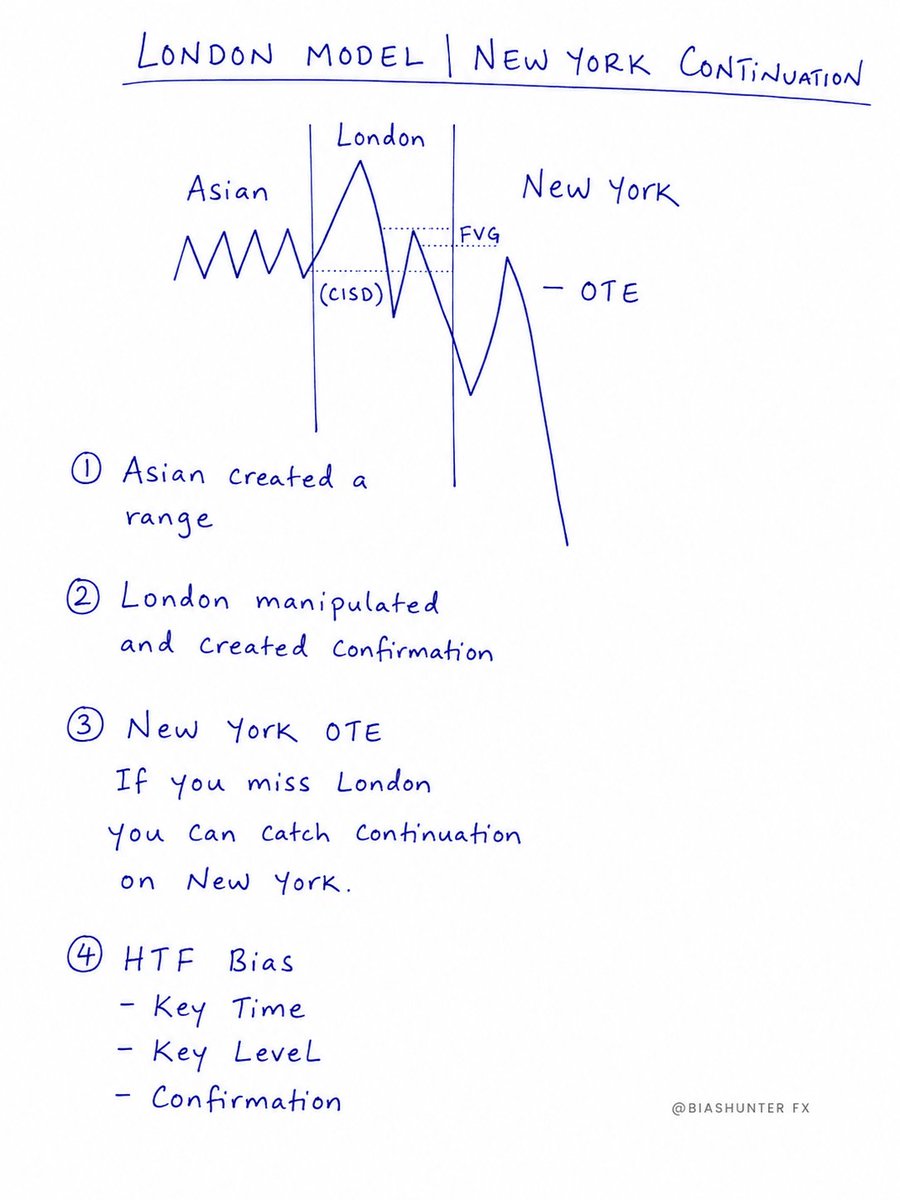 LONDON MODEL | NEW YORK CONTINUATION
London
Asian
New York
FVG
(CISD)
– OTE
① Asian created a
range
② London manipulated
and created confirmation
③ New York OTE
If you miss London
you can catch continuation
on New York.
④ HTF Bias
– Key Time
– Key Level
– Confirmation
@BIASHUNTER FX